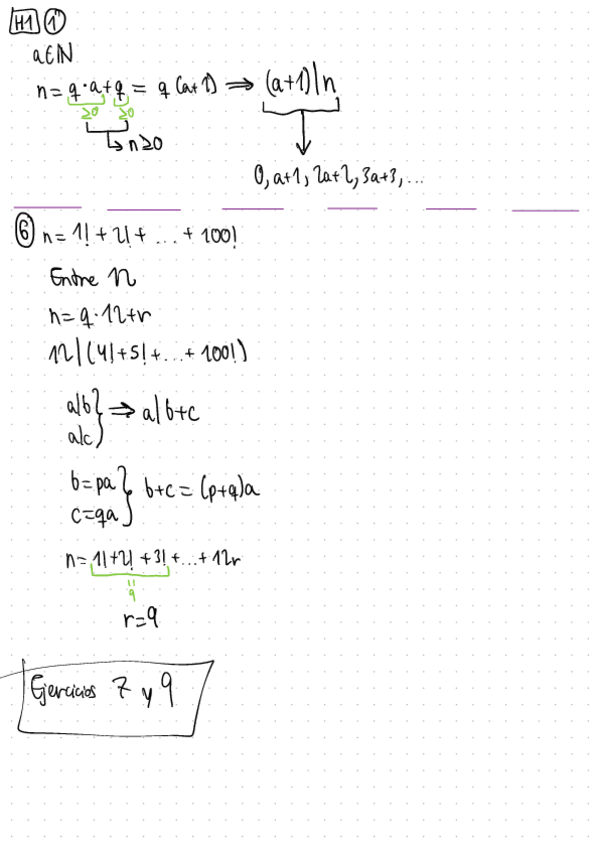 H1 1
a∈ℕ
n = q·a + q = q (a+1) ⇒ (a+1)|n
≥0 ≥0
↳ n≥0
0, a+1, 2a+2, 3a+3, ...
6 n = 1! + 2! + ... + 100!
Entre 12
n = q·12 + r
12|(4! + 5! + ... + 100!)
a|b
a|c } ⇒ a|b+c
b = pa
c = qa } b+c = (p+q)a
n = 1! + 2! + 3! + ... + 12r
9
r = 9
Ejercicios 7 y 9